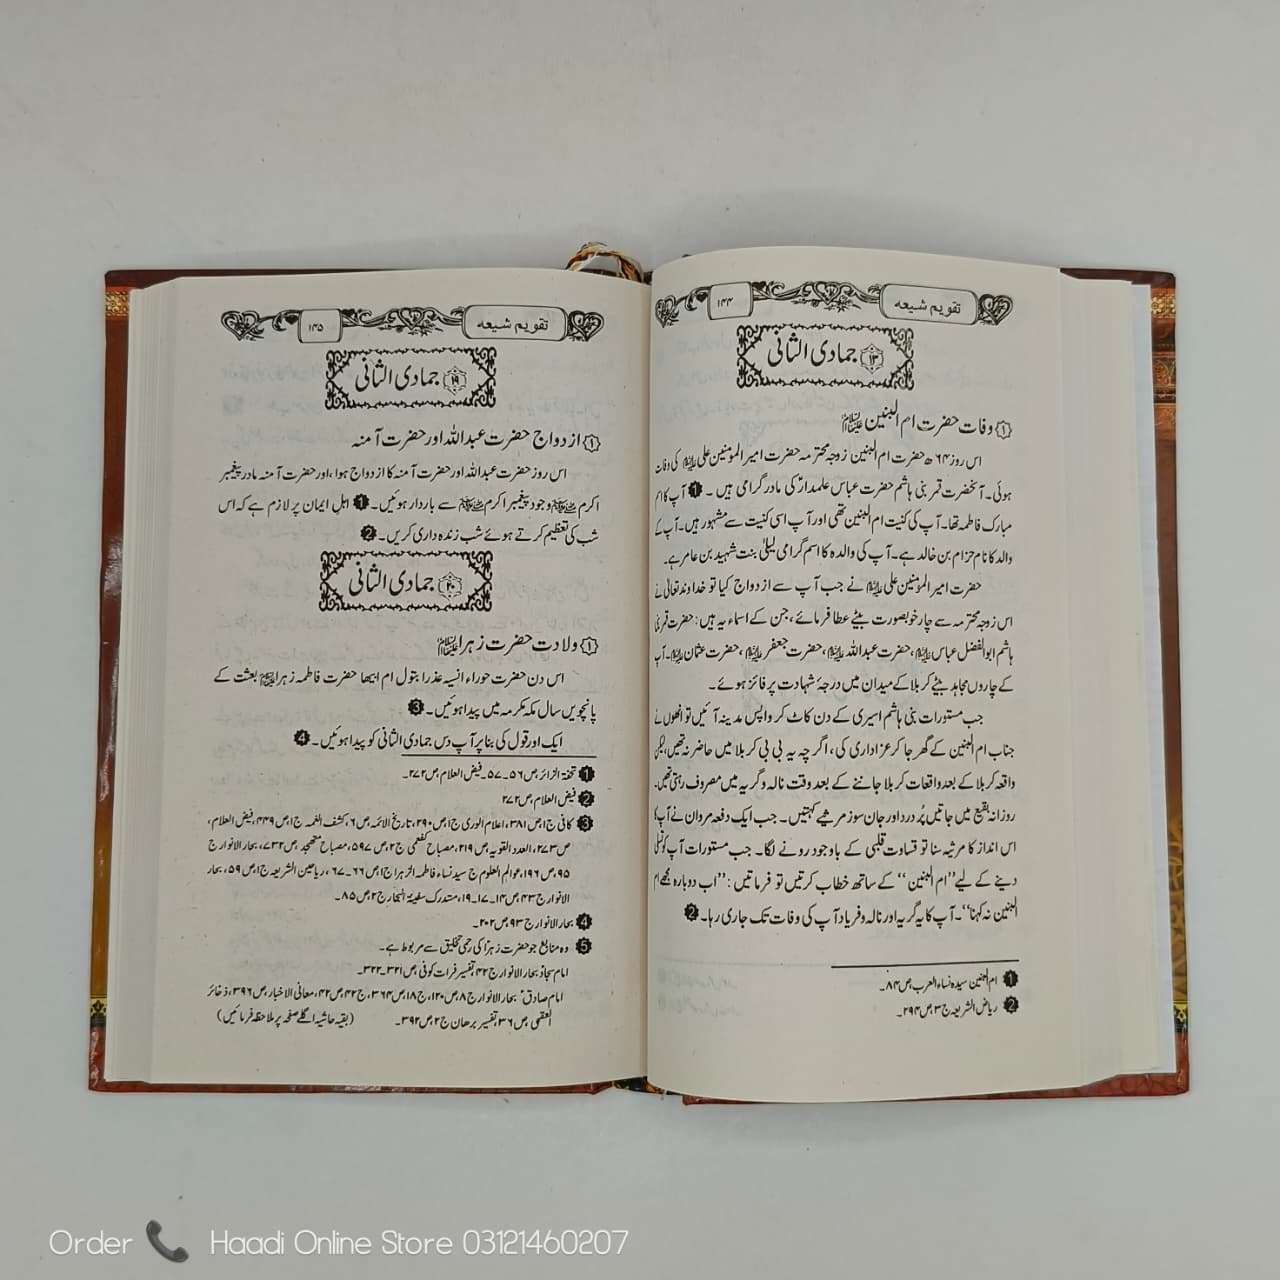 تقویم شیعہ
۱۴۴
۱۳ جمادی الثانی
۱ وفات حضرت ام البنین علیہاالسلام
اس روز ۶۴ھ حضرت ام البنین زوجہ محترمہ حضرت امیر المؤمنین علی علیہ السلام کی وفات
ہوئی۔ آنحضرت قمر بنی ہاشم حضرت عباس علمدارؑ کی مادر گرامی ہیں ۔ 1 آپ کا اسم
مبارک فاطمہ تھا۔ آپ کی کنیت ام البنین تھی اور آپ اسی کنیت سے مشہور ہیں۔ آپ کے
والد کا نام حزام بن خالد ہے۔ آپ کی والدہ کا اسم گرامی لیلیٰ بنت شہید بن عامر ہے۔
حضرت امیر المؤمنین علی علیہ السلام نے جب آپ سے ازدواج کیا تو خداوند تعالیٰ نے
اس زوجہ محترمہ سے چار خوبصورت بیٹے عطا فرمائے، جن کے اسماء یہ ہیں: حضرت قمر بنی
ہاشم ابوالفضل عباس علیہ السلام، حضرت عبداللہ علیہ السلام، حضرت جعفر علیہ السلام، حضرت عثمان علیہ السلام۔ آپ
کے چاروں مجاہد بیٹے کربلا کے میدان میں درجۂ شہادت پر فائز ہوئے۔
جب مستورات بنی ہاشم اسیری کے دن کاٹ کر واپس مدینہ آئیں تو انھوں نے
جناب ام البنین کے گھر جا کر عزاداری کی، اگرچہ یہ بی بی کربلا میں حاضر نہ تھیں، لیکن
واقعہ کربلا کے بعد واقعات کربلا جاننے کے بعد وقت نالہ و گریہ میں مصروف رہتی تھیں۔
روزانہ بقیع میں جاتیں پُر درد اور جان سوز مرثیے کہتیں۔ جب ایک دفعہ مروان نے آپ کا
اس انداز کا مرثیہ سنا تو قساوت قلبی کے باوجود رونے لگا۔ جب مستورات آپ کو تسلی
دینے کے لیے ”ام البنین“ کے ساتھ خطاب کرتیں تو فرماتیں: ”اب دوبارہ مجھے ام
البنین نہ کہنا“۔ آپ کا یہ گریہ اور نالہ و فریاد آپ کی وفات تک جاری رہا۔ 2
1 ام البنین سیدہ نساء العرب، ص ۸۴۔
2 ریاض الشریعہ ج ۳، ص ۲۹۴۔
تقویم شیعہ
۱۴۵
۱۹ جمادی الثانی
۱ ازدواج حضرت عبداللہ اور حضرت آمنہ
اس روز حضرت عبداللہ اور حضرت آمنہ کا ازدواج ہوا، اور حضرت آمنہ مادر پیغمبر
اکرم ﷺ وجود پیغمبر اکرم ﷺ سے باردار ہوئیں۔ 1 اہل ایمان پر لازم ہے کہ اس
شب کی تعظیم کرتے ہوئے شب زندہ داری کریں۔ 2
۲۰ جمادی الثانی
۱ ولادت حضرت زہرا علیہاالسلام
اس دن حضرت حوراء انسیہ عذرا بتول ام ابیھا حضرت فاطمہ زہرا علیہاالسلام بعثت کے
پانچویں سال مکہ مکرمہ میں پیدا ہوئیں۔ 3
ایک اور قول کی بنا پر آپ دس جمادی الثانی کو پیدا ہوئیں۔ 4
1 تحفۃ الزائر ص ۵۶۔ ۵۷۔ فیض العلام، ص ۲۷۲۔
2 فیض العلام، ص ۲۷۲
3 کافی ج ۱، ص ۳۸۱، اعلام الوری ج ۱، ص ۲۹۰، تاریخ الائمہ ص ۶، کشف الغمہ ج ۱، ص ۴۴۹، فیض العلام،
ص ۲۷۳، العدد القویہ ص ۲۱۹، مصباح کفعمی ج ۲، ص ۵۹۷، مصباح متهجد ص ۷۳۲، بحار الانوار ج
۹۵، ص ۱۹۶، عوالم العلوم ج سیدہ نساء فاطمۃ الزہرا ج ۱، ص ۶۶۔ ۶۷، ریاحین الشریعہ ج ۱، ص ۵۹، بحار
الانوار ج ۴۳، ص ۱۴۔ ۱۷۔ ۱۹، متدرک سفینۃ البحار ج ۲، ص ۸۵۔
4 بحار الانوار ج ۹۳، ص ۲۰۲۔
5 وہ منابع جو حضرت زہرا کی رحمی تخلیق سے مربوط ہے۔
امام سجادؑ بحار الانوار ج ۴۲، تفسیر فرات کوفی، ص ۳۲۱۔ ۳۲۲۔
امام صادقؑ بحار الانوار ج ۸، ص ۱۲۰، ج ۱۸، ص ۳۶۴، ج ۴۲، ص ۴۲، معانی الاخبار، ص ۳۹۶، ذخائر
العقبی، ص ۳۶، تفسیر برھان ج ۲، ص ۳۹۲۔ (بقیہ حاشیہ اگلے صفحہ پر ملاحظہ فرمائیں)
Order Haadi Online Store 03121460207